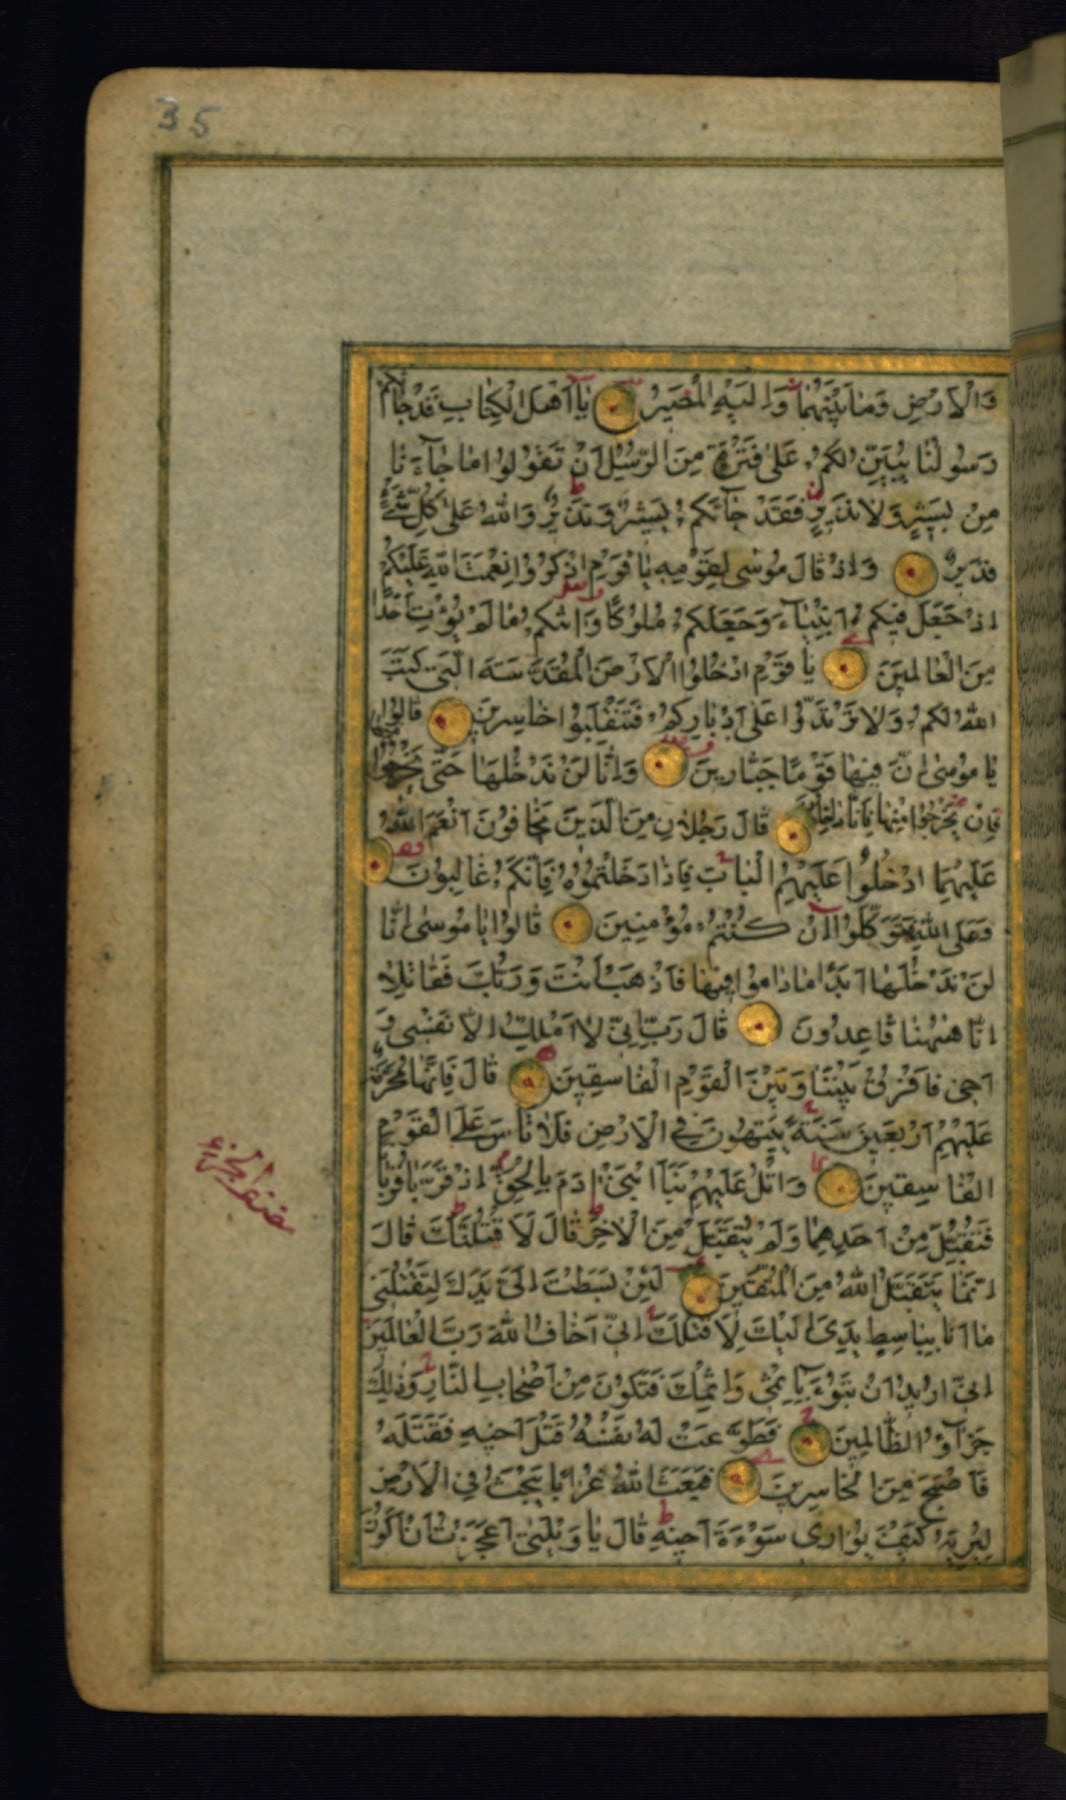 35
وَالْاَرْضِ وَمَا بَيْنَهُمَا وَاِلَيْهِ الْمَصِيرُ يَا اَهْلَ الْكِتَابِ قَدْ جَاءَكُمْ
رَسُولُنَا يُبَيِّنُ لَكُمْ عَلٰى فَتْرَةٍ مِنَ الرُّسُلِ اَنْ تَقُولُوا مَا جَاءَنَا
مِنْ بَشِيرٍ وَلَا نَذِيرٍ فَقَدْ جَاءَكُمْ بَشِيرٌ وَنَذِيرٌ وَاللّٰهُ عَلٰى كُلِّ شَيْءٍ
قَدِيرٌ وَاِذْ قَالَ مُوسٰى لِقَوْمِهِ يَا قَوْمِ اذْكُرُوا نِعْمَتَ اللّٰهِ عَلَيْكُمْ
اِذْ جَعَلَ فِيكُمْ اَنْبِيَاءَ وَجَعَلَكُمْ مُلُوكًا وَاٰتٰىكُمْ مَا لَمْ يُؤْتِ اَحَدًا
مِنَ الْعَالَمِينَ يَا قَوْمِ ادْخُلُوا الْاَرْضَ الْمُقَدَّسَةَ الَّتِي كَتَبَ
اللّٰهُ لَكُمْ وَلَا تَرْتَدُّوا عَلٰى اَدْبَارِكُمْ فَتَنْقَلِبُوا خَاسِرِينَ قَالُوا
يَا مُوسٰى اِنَّ فِيهَا قَوْمًا جَبَّارِينَ وَاِنَّا لَنْ نَدْخُلَهَا حَتّٰى يَخْرُجُوا
فَاِنْ يَخْرُجُوا مِنْهَا فَاِنَّا دَاخِلُونَ قَالَ رَجُلَانِ مِنَ الَّذِينَ يَخَافُونَ اَنْعَمَ اللّٰهُ
عَلَيْهِمَا ادْخُلُوا عَلَيْهِمُ الْبَابَ فَاِذَا دَخَلْتُمُوهُ فَاِنَّكُمْ غَالِبُونَ
وَعَلَى اللّٰهِ فَتَوَكَّلُوا اِنْ كُنْتُمْ مُؤْمِنِينَ قَالُوا يَا مُوسٰى اِنَّا
لَنْ نَدْخُلَهَا اَبَدًا مَا دَامُوا فِيهَا فَاذْهَبْ اَنْتَ وَرَبُّكَ فَقَاتِلَا
اِنَّا هٰهُنَا قَاعِدُونَ قَالَ رَبِّ اِنِّي لَا اَمْلِكُ اِلَّا نَفْسِي وَ
اَخِي فَافْرُقْ بَيْنَنَا وَبَيْنَ الْقَوْمِ الْفَاسِقِينَ قَالَ فَاِنَّهَا مُحَرَّمَةٌ
عَلَيْهِمْ اَرْبَعِينَ سَنَةً يَتِيهُونَ فِي الْاَرْضِ فَلَا تَاْسَ عَلَى الْقَوْمِ
الْفَاسِقِينَ وَاتْلُ عَلَيْهِمْ نَبَاَ ابْنَيْ اٰدَمَ بِالْحَقِّ اِذْ قَرَّبَا قُرْبَانًا
فَتُقُبِّلَ مِنْ اَحَدِهِمَا وَلَمْ يُتَقَبَّلْ مِنَ الْاٰخَرِ قَالَ لَاَقْتُلَنَّكَ قَالَ
اِنَّمَا يَتَقَبَّلُ اللّٰهُ مِنَ الْمُتَّقِينَ لَئِنْ بَسَطْتَ اِلَيَّ يَدَكَ لِتَقْتُلَنِي
مَا اَنَا بِبَاسِطٍ يَدِيَ اِلَيْكَ لِاَقْتُلَكَ اِنِّي اَخَافُ اللّٰهَ رَبَّ الْعَالَمِينَ
اِنِّي اُرِيدُ اَنْ تَبُوءَ بِاِثْمِي وَاِثْمِكَ فَتَكُونَ مِنْ اَصْحَابِ النَّارِ وَذٰلِكَ
جَزَاؤُ الظَّالِمِينَ فَطَوَّعَتْ لَهُ نَفْسُهُ قَتْلَ اَخِيهِ فَقَتَلَهُ
فَاَصْبَحَ مِنَ الْخَاسِرِينَ فَبَعَثَ اللّٰهُ غُرَابًا يَبْحَثُ فِي الْاَرْضِ
لِيُرِيَهُ كَيْفَ يُوَارِي سَوْءَةَ اَخِيهِ قَالَ يَا وَيْلَتٰى اَعَجَزْتُ اَنْ اَكُونَ
الجزء